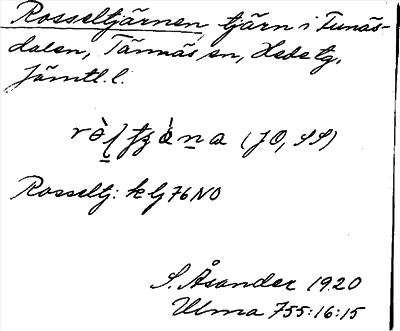 Rosseltjärnen, tjärn i Funäs-
dalen, Tännäs sn, Hede tg,
Jämtl. l.
(JO, SS)
Rosseltj: k lj 76 NO
S. Åsander 1920
Ulma 755:16:15